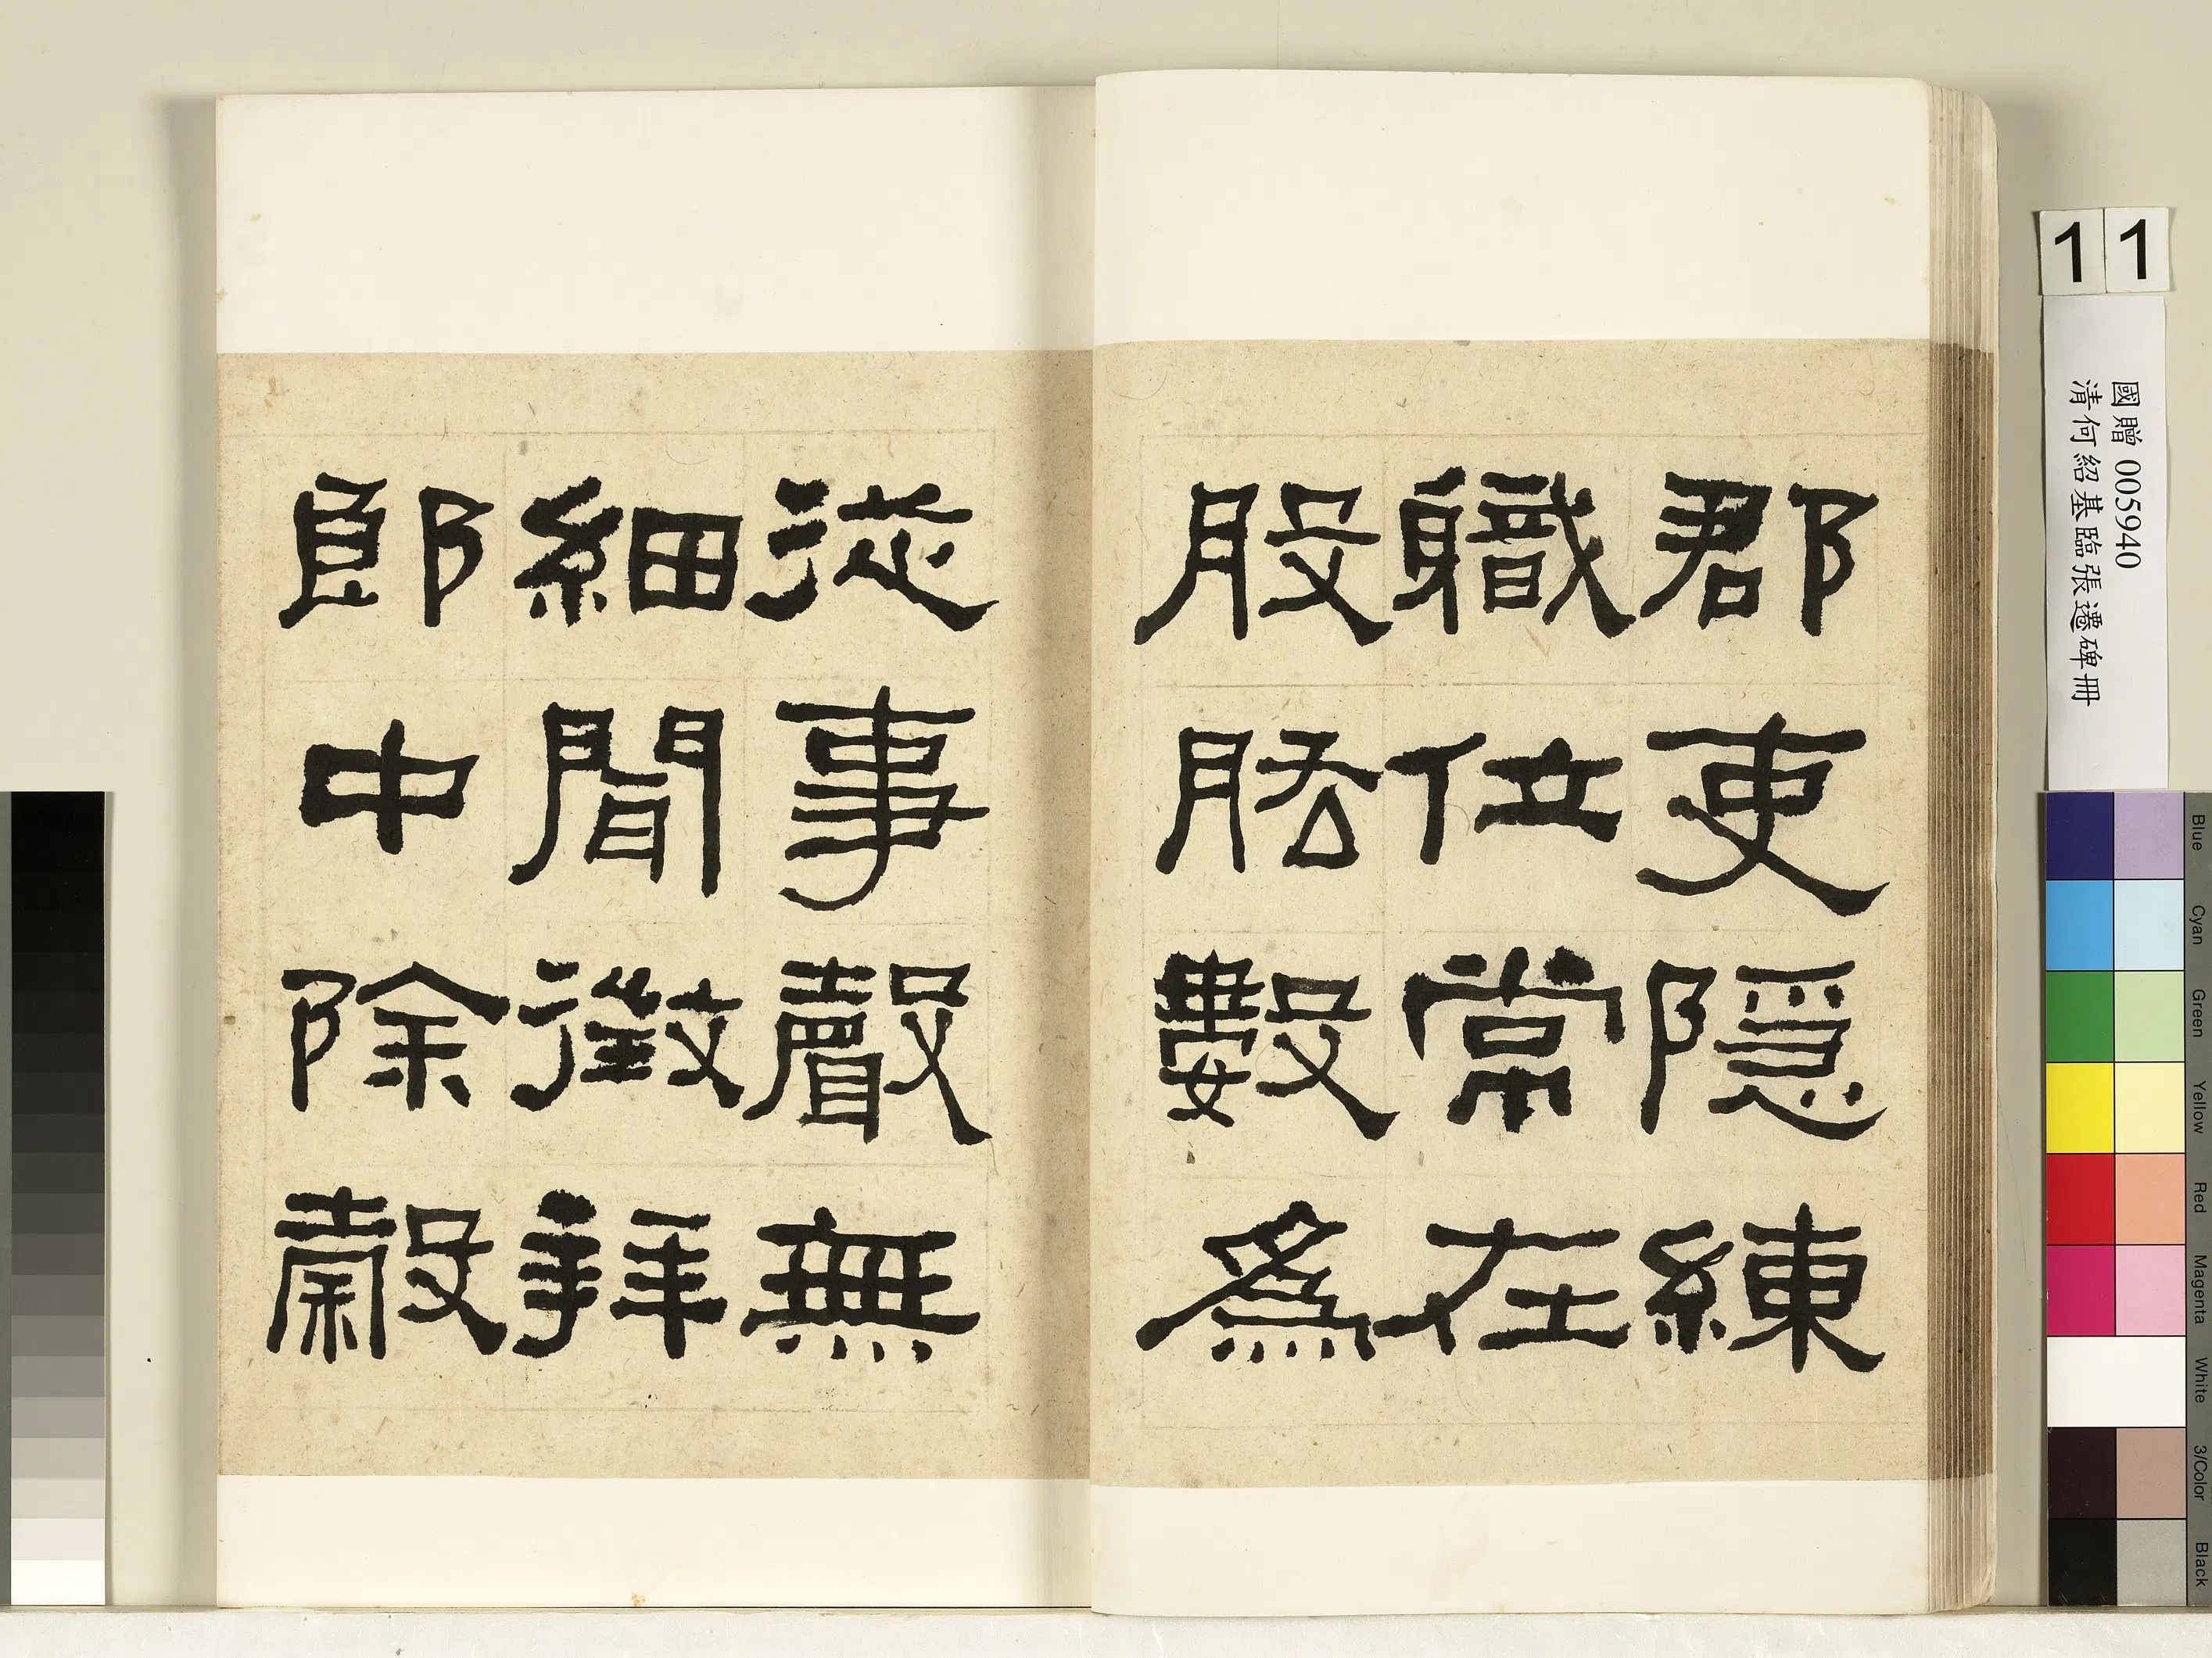 郡吏隱練
職位常在
股肱數為
從事聲無
細聞徵拜
郎中除穀
11
國贈 005940
清何紹基臨張遷碑冊
Blue
Cyan
Green
Yellow
Red
Magenta
White
3/Color
Black